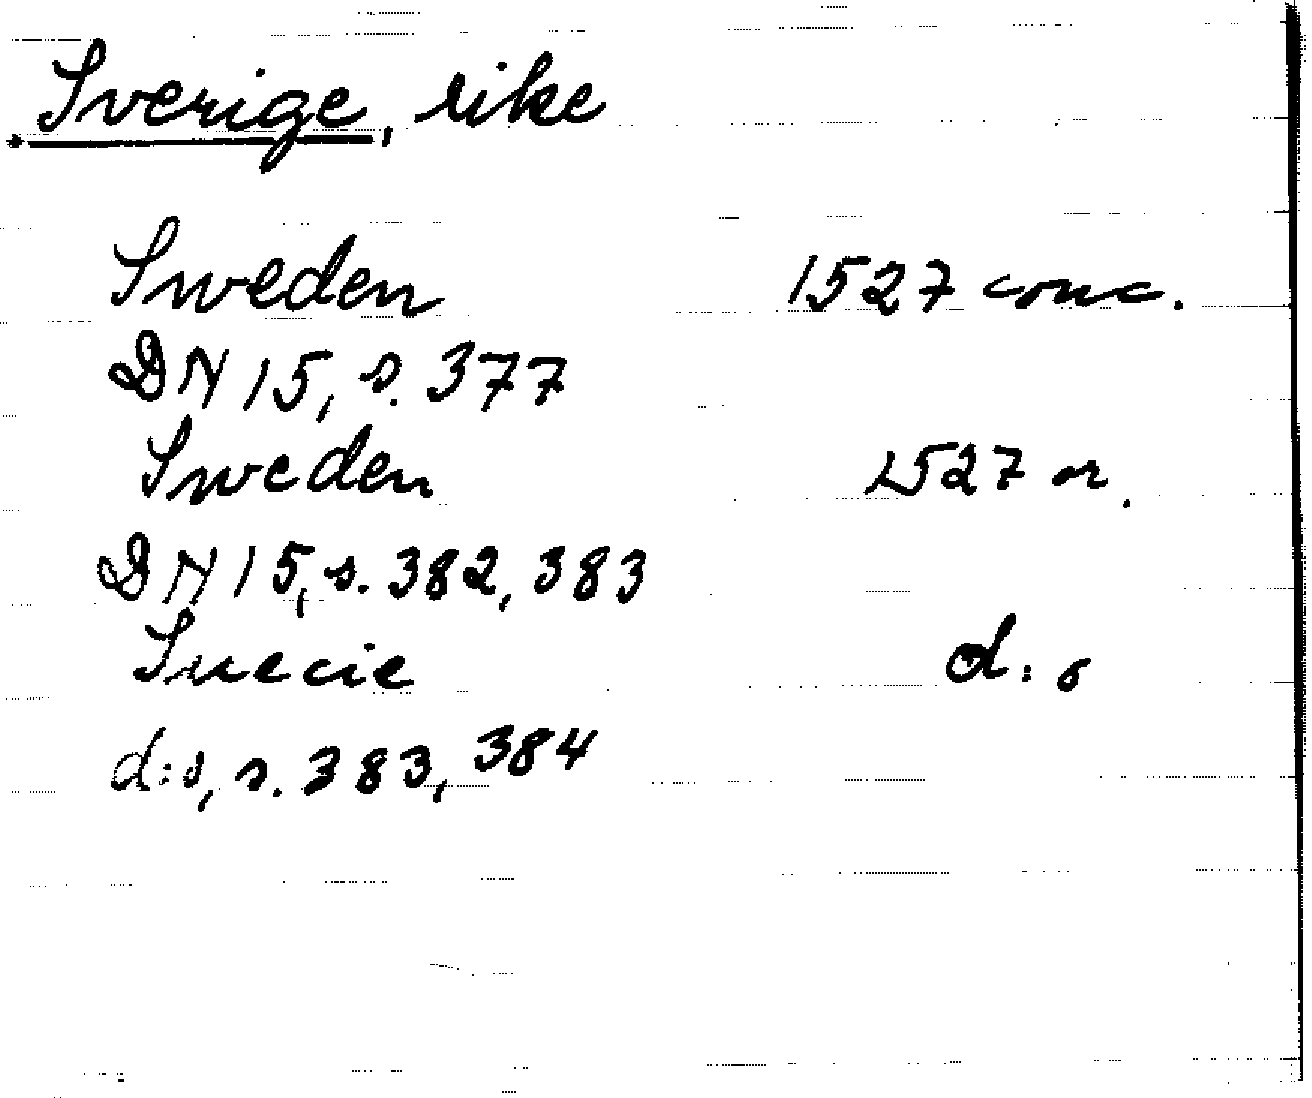 Sverige, rike
Sweden 1527 conc.
DN 15, s. 377
Sweden 1527 or.
DN 15, s. 382, 383
Suecie d:o
d:o, s. 383, 384